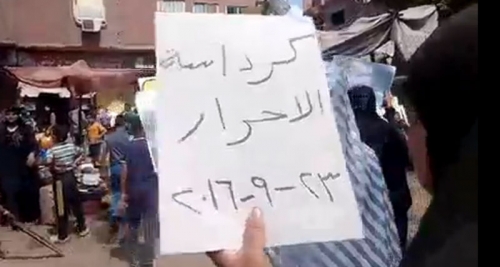 كرداسة
الاحرار
٢٣-٩-٢٠١٦